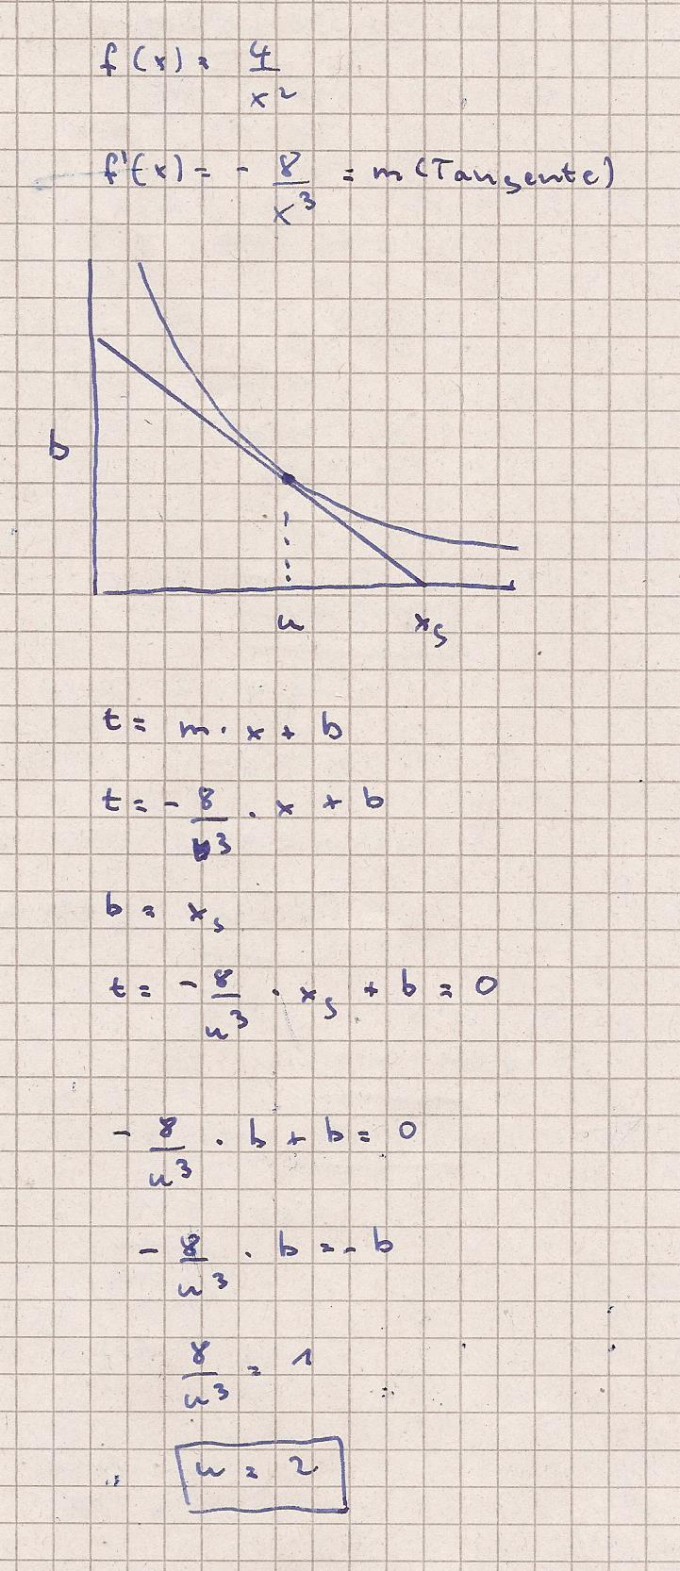 f(x) = 4/x²
f'(x) = - 8/x³ = m (Tangente)
b
u
xs
t = m · x + b
t = - 8/u³ · x + b
b = xs
t = - 8/u³ · xs + b = 0
- 8/u³ · b + b = 0
- 8/u³ · b = - b
8/u³ = 1
u = 2